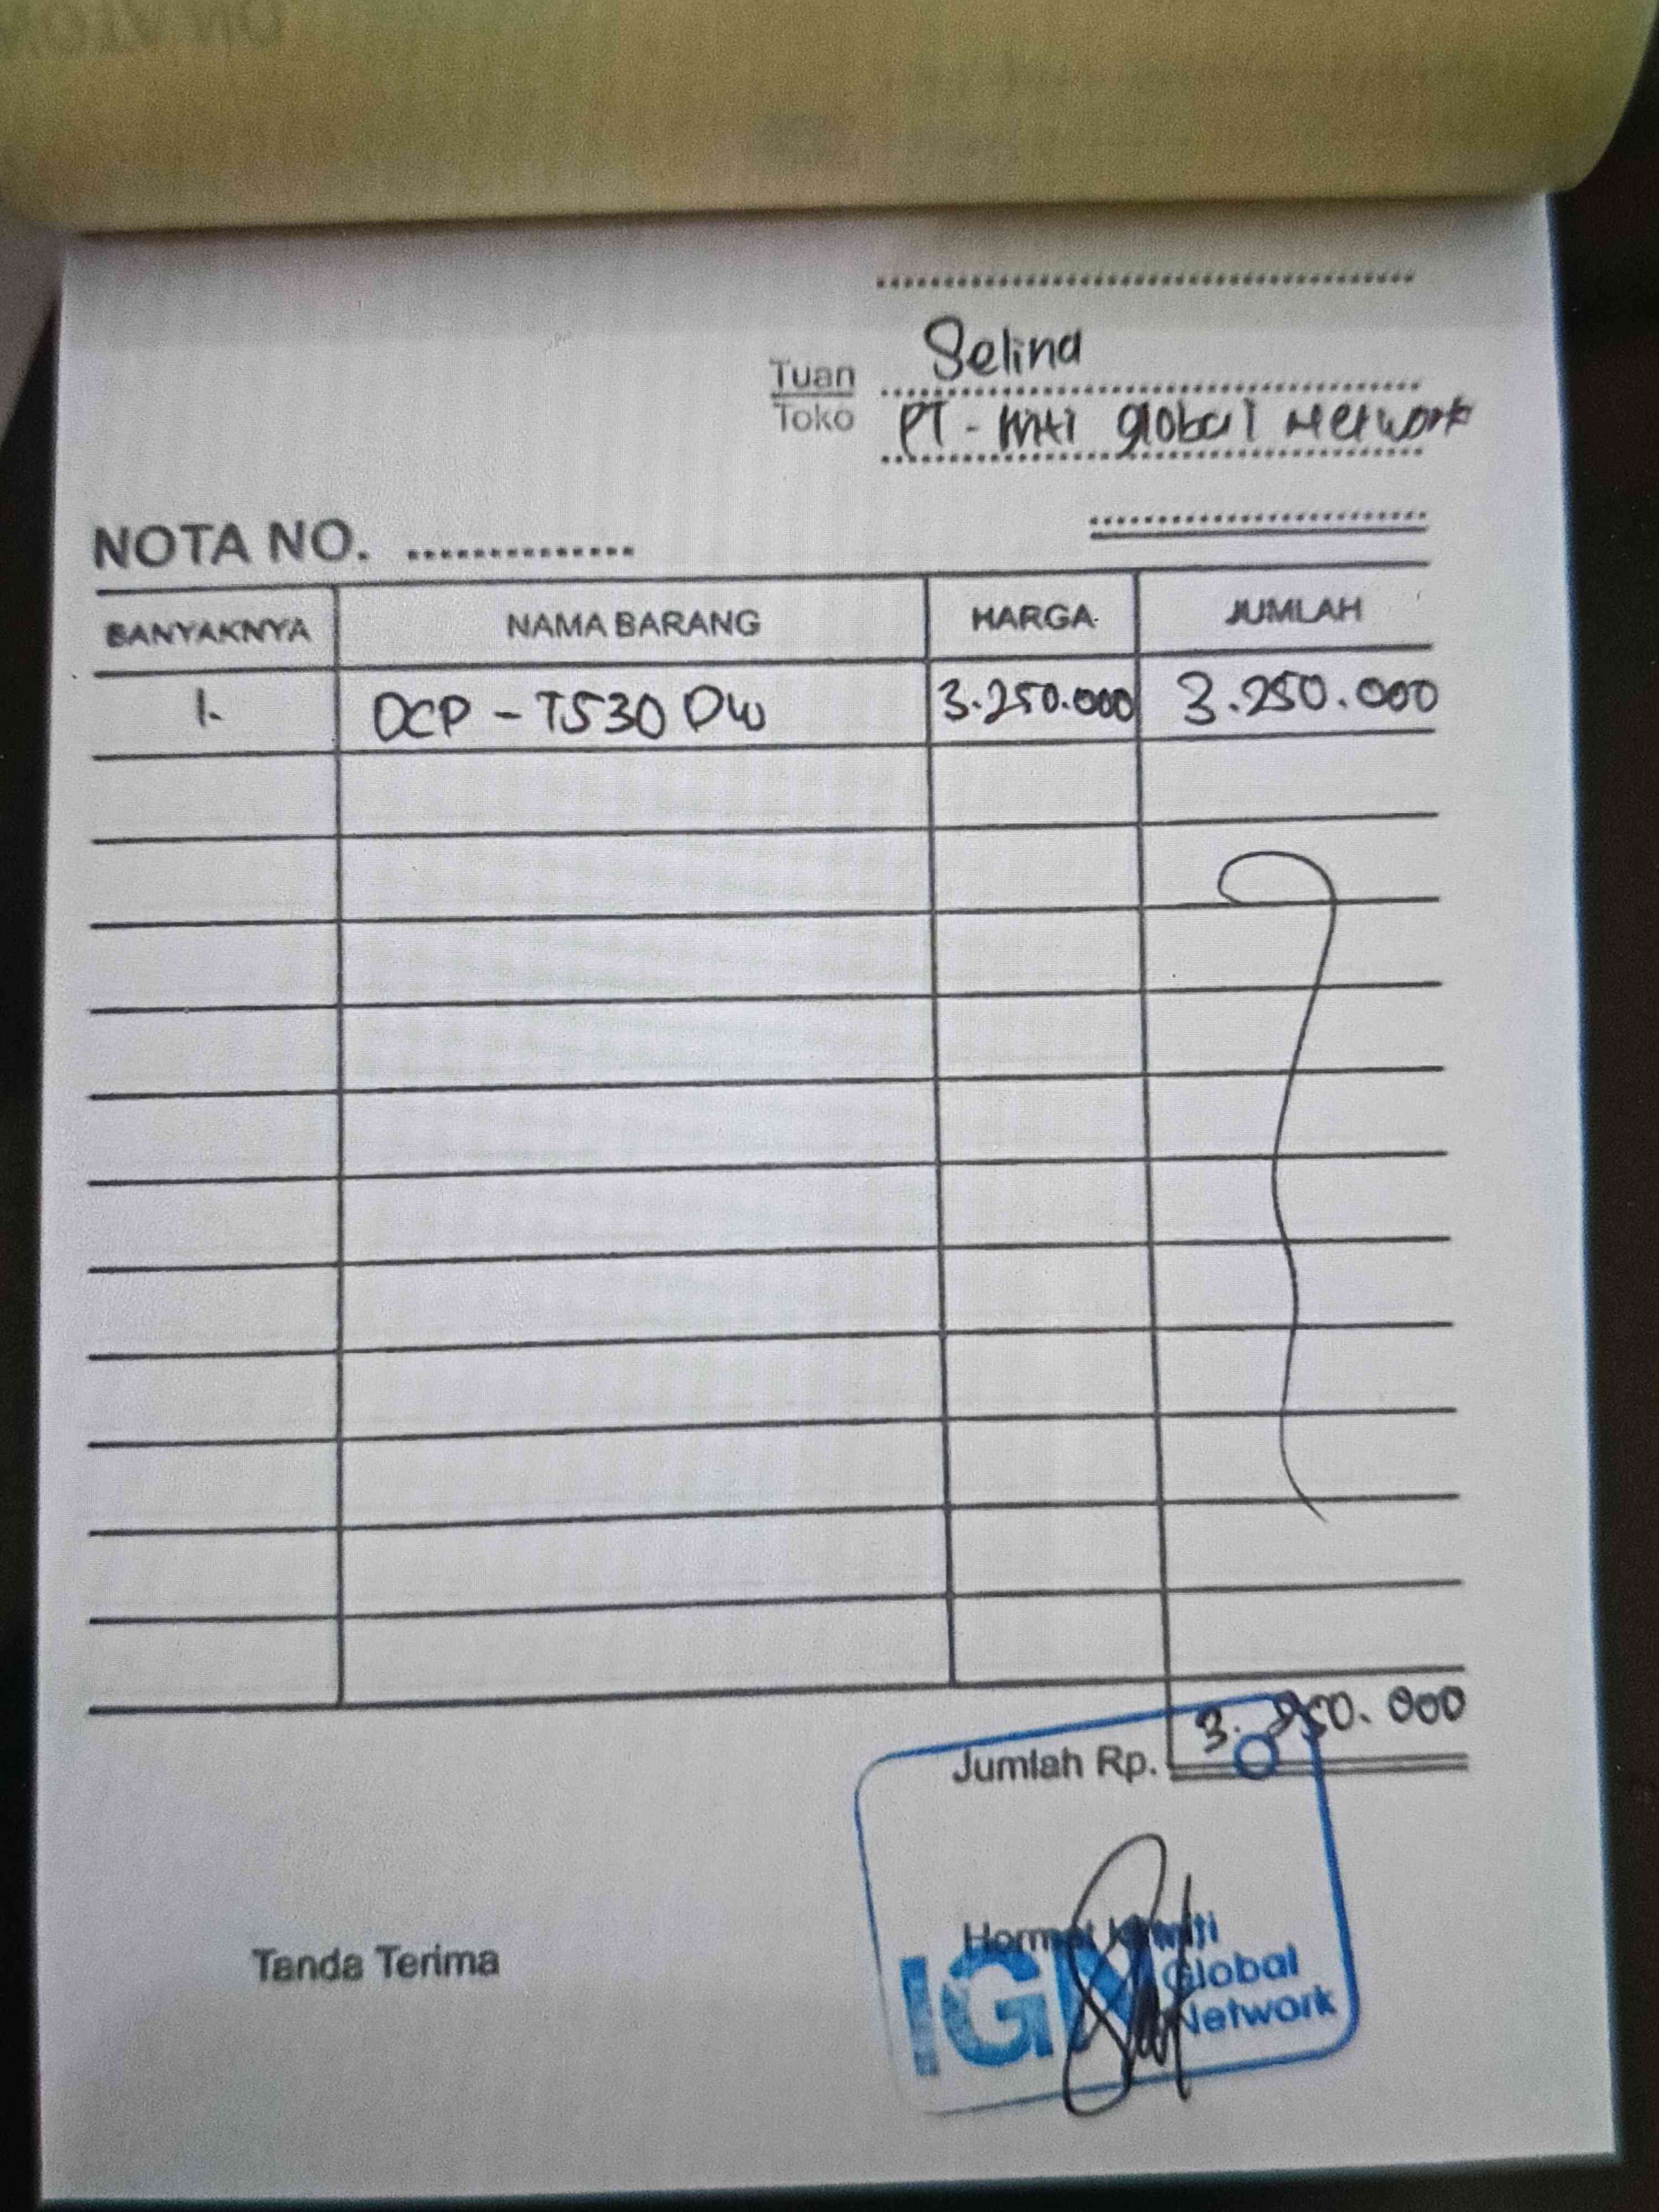 Selina
Tuan
Toko
PT - Inti Global Network
NOTA NO. ..............
BANYAKNYA NAMA BARANG HARGA JUMLAH
1. DCP - T530 DW 3.250.000 3.250.000
Jumlah Rp. 3. 250. 000
Tanda Terima
Hormat
Inti
IGN Global
Network